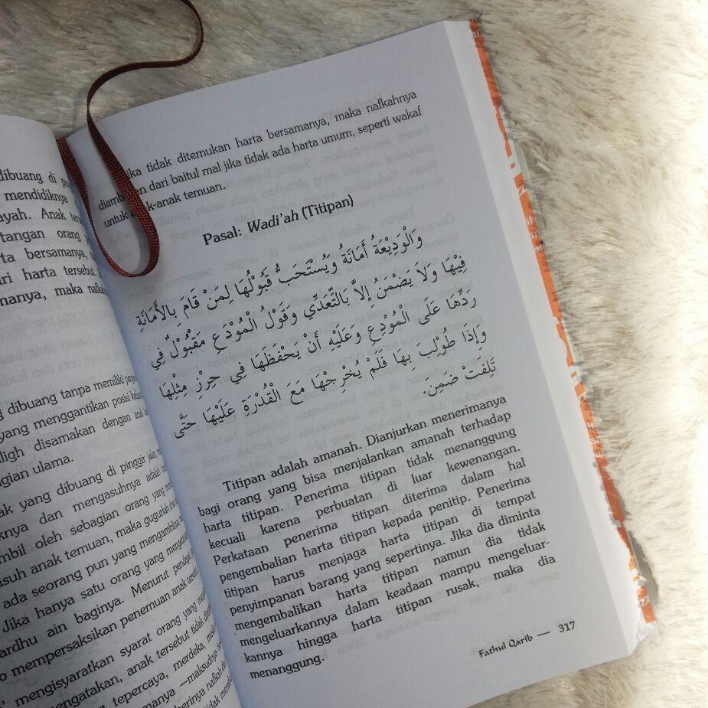 dibuang di
mendidiknya
ayah. Anak
tangan orang
rta bersamanya,
ri harta tersebut
manya, maka
dibuang tanpa memiliki
yang menggantikan posisi
ligh disamakan dengan
gian ulama.
ak yang dibuang di pinggir jalan
knya dan mengasuhnya adalah
mbil oleh sebagian orang yang
suh anak temuan, maka gugurlah
ada seorang pun yang mengambilnya
Jika hanya satu orang yang
ardhu ain baginya. Menurut pendapat
b mempersaksikan penemuan anak
mengisyaratkan syarat orang yang
ngatakan, anak tersebut tidak
tepercaya, merdeka,
Jika tidak ditemukan harta bersamanya, maka nafkahnya
dari baitul mal jika tidak ada harta umum, seperti wakaf
untuk anak-anak temuan.
Pasal: Wadi'ah (Titipan)
وَالْوَدِيْعَةُ أَمَانَةٌ وَيُسْتَحَبُّ قَبُوْلُهَا لِمَنْ قَامَ بِالأَمَانَةِ
فِيْهَا وَلاَ يَضْمَنُ إِلاَّ بِالتَّعَدِّي وَقَوْلُ الْمُوْدَعِ مَقْبُوْلٌ فِي
رَدِّهَا عَلَى الْمُوْدِعِ وَعَلَيْهِ أَنْ يَحْفَظَهَا فِي حِرْزِ مِثْلِهَا
وَإِذَا طُوْلِبَ بِهَا فَلَمْ يُخْرِجْهَا مَعَ الْقُدْرَةِ عَلَيْهَا حَتَّى
تَلِفَتْ ضَمِنَ.
Titipan adalah amanah. Dianjurkan menerimanya
bagi orang yang bisa menjalankan amanah terhadap
harta titipan. Penerima titipan tidak menanggung
kecuali karena perbuatan di luar kewenangan.
Perkataan penerima titipan diterima dalam hal
pengembalian harta titipan kepada penitip. Penerima
titipan harus menjaga harta titipan di tempat
penyimpanan barang yang sepertinya. Jika dia diminta
mengembalikan harta titipan namun dia tidak
mengeluarkannya dalam keadaan mampu mengeluar-
kannya hingga harta titipan rusak, maka dia
menanggung.
Fathul Qarib — 317